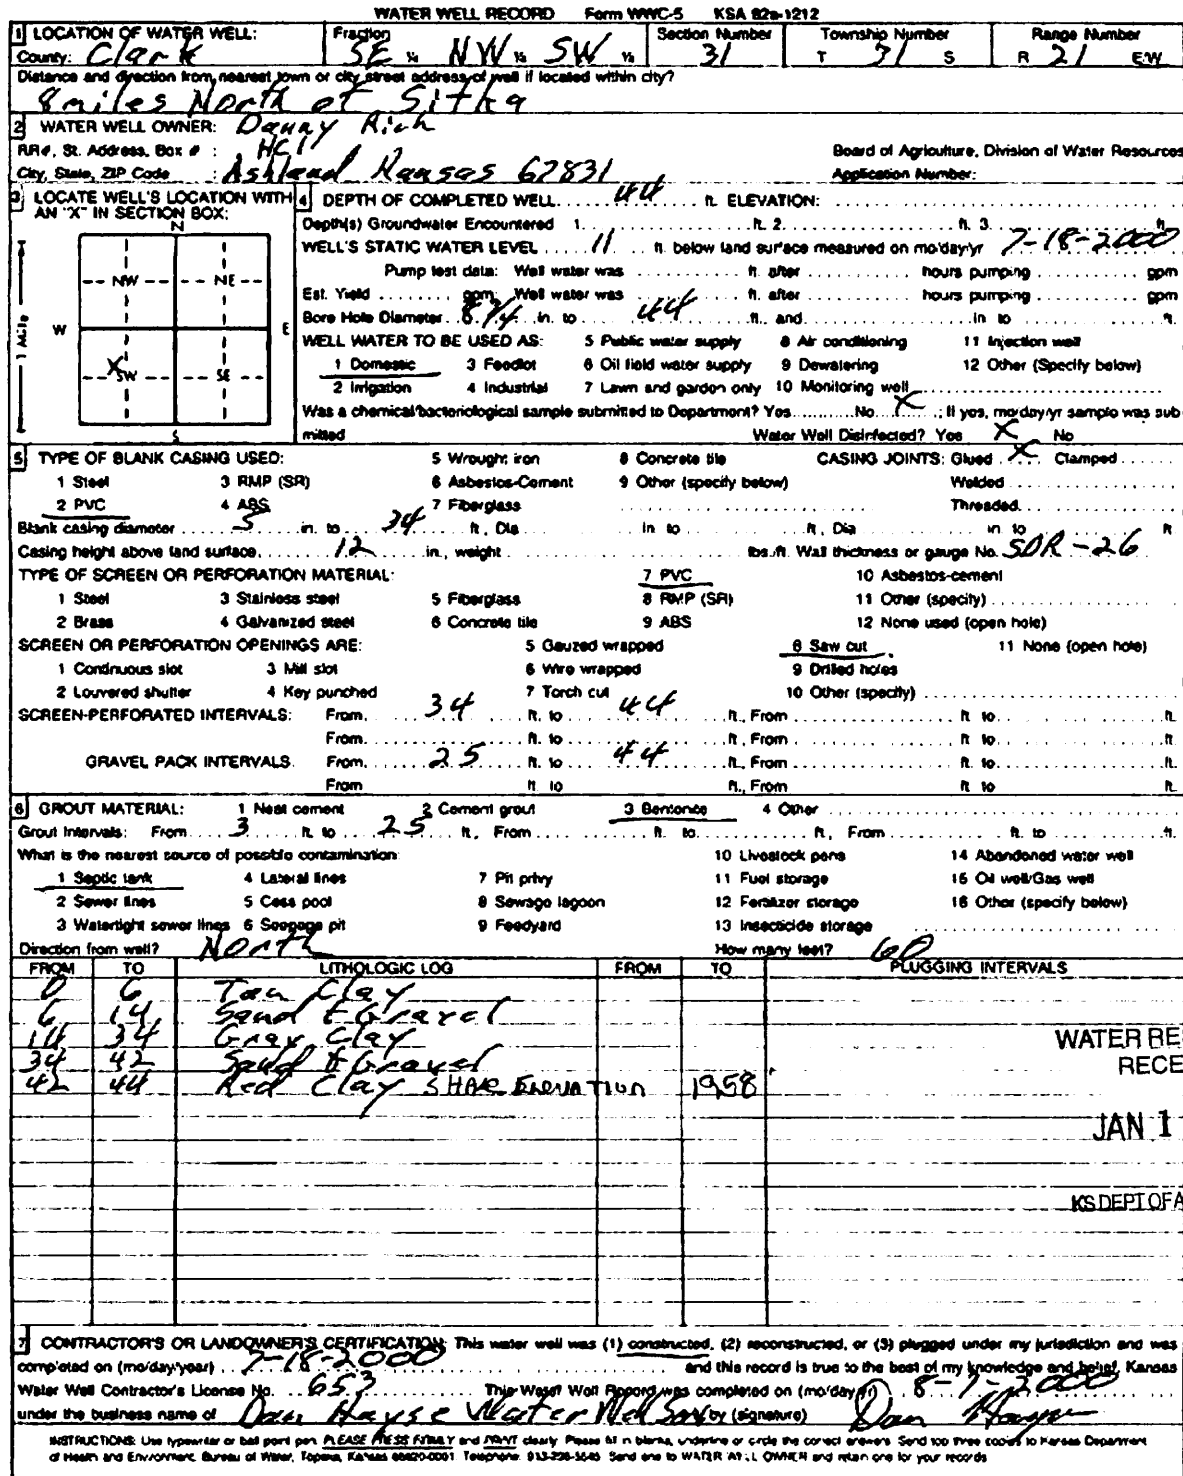 WATER WELL RECORD Form WWC-5 KSA 82a-1212
1 LOCATION OF WATER WELL: Fraction Section Number Township Number Range Number
County: Clark SE ¼ NW ¼ SW ¼ 31 T 31 S R 21 E/W
Distance and direction from nearest town or city street address of well if located within city?
8 miles North of Sitka
2 WATER WELL OWNER: Danny Rich
RR#, St. Address, Box # : HC1 Board of Agriculture, Division of Water Resources
City, State, ZIP Code : Ashland Kansas 67831 Application Number:
3 LOCATE WELL'S LOCATION WITH AN "X" IN SECTION BOX:
N
NW NE
W E
X SW SE
S
1 Mile
4 DEPTH OF COMPLETED WELL 44 ft. ELEVATION:
Depth(s) Groundwater Encountered 1. ft. 2. ft. 3. ft.
WELL'S STATIC WATER LEVEL 11 ft. below land surface measured on mo/day/yr 7-18-2000
Pump test data: Well water was ft. after hours pumping gpm
Est. Yield gpm: Well water was ft. after hours pumping gpm
Bore Hole Diameter 8 3/4 in. to 44 ft., and in. to ft.
WELL WATER TO BE USED AS: 5 Public water supply 8 Air conditioning 11 Injection well
1 Domestic 3 Feedlot 6 Oil field water supply 9 Dewatering 12 Other (Specify below)
2 Irrigation 4 Industrial 7 Lawn and garden only 10 Monitoring well
Was a chemical/bacteriological sample submitted to Department? Yes No X ; If yes, mo/day/yr sample was sub
mitted Water Well Disinfected? Yes X No
5 TYPE OF BLANK CASING USED: 5 Wrought iron 8 Concrete tile CASING JOINTS: Glued X Clamped
1 Steel 3 RMP (SR) 6 Asbestos-Cement 9 Other (specify below) Welded
2 PVC 4 ABS 7 Fiberglass Threaded
Blank casing diameter 5 in. to 34 ft., Dia in. to ft., Dia in. to ft
Casing height above land surface 12 in., weight lbs./ft. Wall thickness or gauge No. SDR-26
TYPE OF SCREEN OR PERFORATION MATERIAL: 7 PVC 10 Asbestos-cement
1 Steel 3 Stainless steel 5 Fiberglass 8 RMP (SR) 11 Other (specify)
2 Brass 4 Galvanized steel 6 Concrete tile 9 ABS 12 None used (open hole)
SCREEN OR PERFORATION OPENINGS ARE: 5 Gauzed wrapped 8 Saw cut 11 None (open hole)
1 Continuous slot 3 Mill slot 6 Wire wrapped 9 Drilled holes
2 Louvered shutter 4 Key punched 7 Torch cut 10 Other (specify)
SCREEN-PERFORATED INTERVALS: From 34 ft. to 44 ft., From ft. to ft.
From ft. to ft., From ft. to ft.
GRAVEL PACK INTERVALS: From 25 ft. to 44 ft., From ft. to ft.
From ft. to ft., From ft. to ft.
6 GROUT MATERIAL: 1 Neat cement 2 Cement grout 3 Bentonite 4 Other
Grout Intervals: From 3 ft. to 25 ft., From ft. to ft., From ft. to ft.
What is the nearest source of possible contamination: 10 Livestock pens 14 Abandoned water well
1 Septic tank 4 Lateral lines 7 Pit privy 11 Fuel storage 15 Oil well/Gas well
2 Sewer lines 5 Cess pool 8 Sewage lagoon 12 Fertilizer storage 16 Other (specify below)
3 Watertight sewer lines 6 Seepage pit 9 Feedyard 13 Insecticide storage
Direction from well? North How many feet? 60
FROM TO LITHOLOGIC LOG FROM TO PLUGGING INTERVALS
0 6 Tan Clay
6 14 Sand & Gravel
14 34 Gray Clay
34 42 Sand & Gravel
42 44 Red Clay 1958
WATER RE
RECE
JAN 1
KS DEPT OF A
7 CONTRACTOR'S OR LANDOWNER'S CERTIFICATION: This water well was (1) constructed, (2) reconstructed, or (3) plugged under my jurisdiction and was
completed on (mo/day/year) 7-18-2000 and this record is true to the best of my knowledge and belief. Kansas
Water Well Contractor's License No. 653 This Water Well Record was completed on (mo/day/yr) 8-7-2000
under the business name of Dan Hayse Water Well Serv by (signature) Dan Hayse
INSTRUCTIONS: Use typewriter or ball point pen. PLEASE PRESS FIRMLY and PRINT clearly. Please fill in blanks, underline or circle the correct answers. Send top three copies to Kansas Department
of Health and Environment, Bureau of Water, Topeka, Kansas 66620-0001. Telephone: 913-296-5545. Send one to WATER WELL OWNER and retain one for your records.